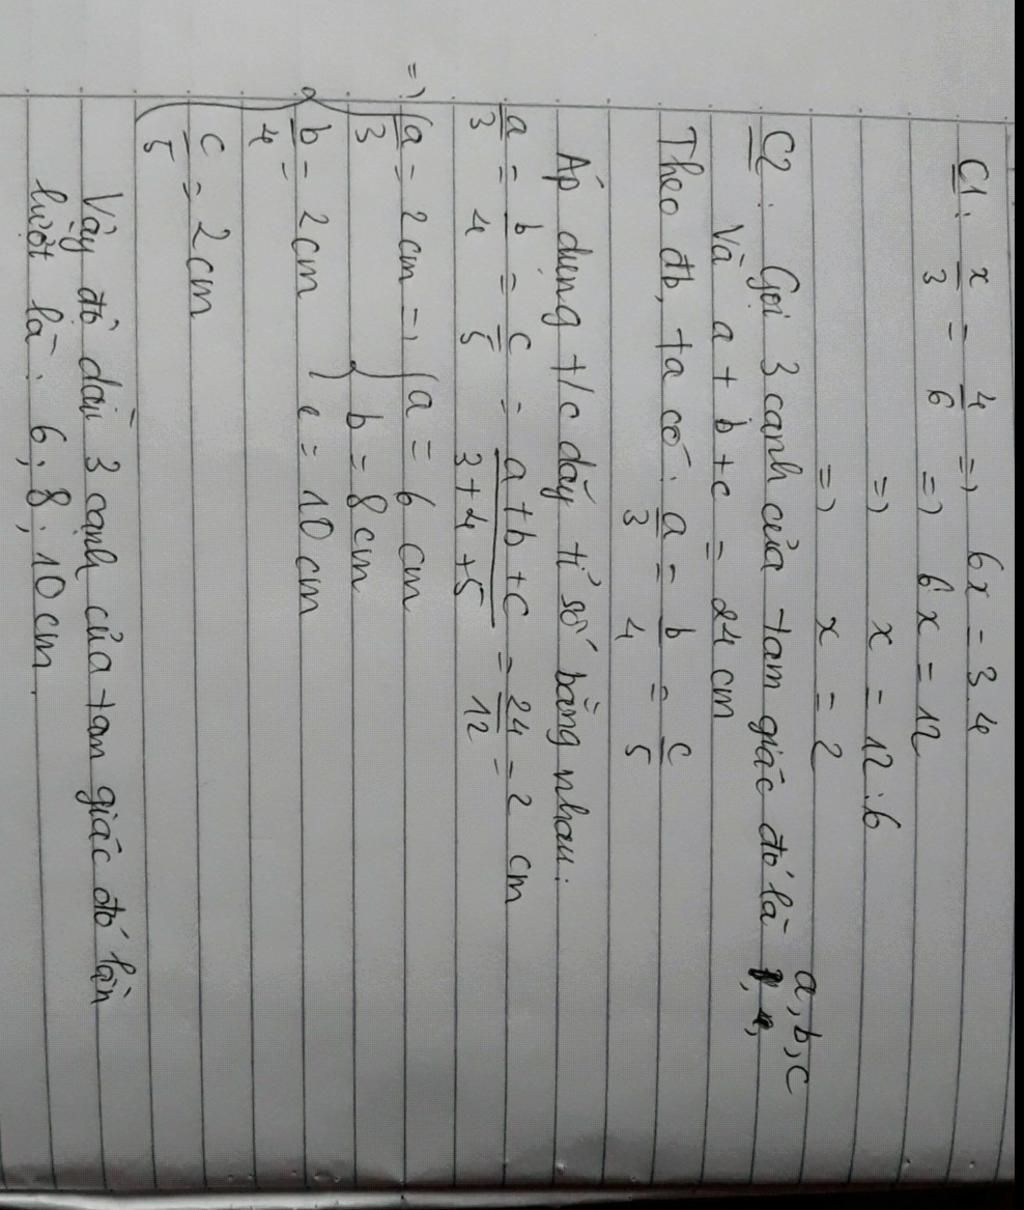 C1: x/3 = 4/6 => 6x = 3.4
=> 6x = 12
=> x = 12:6
=> x = 2
C2: Gọi 3 cạnh của tam giác đó là a, b, c
Và a + b + c = 24 cm
Theo đb, ta có: a/3 = b/4 = c/5
Áp dụng t/c dãy tỉ số bằng nhau:
a/3 = b/4 = c/5 = a+b+c/3+4+5 = 24/12 = 2 cm
=> { a/3 = 2cm => { a = 6 cm
b/4 = 2cm b = 8cm
c/5 = 2cm c = 10cm
Vậy độ dài 3 cạnh của tan giác đó lần
lượt là: 6; 8; 10cm.